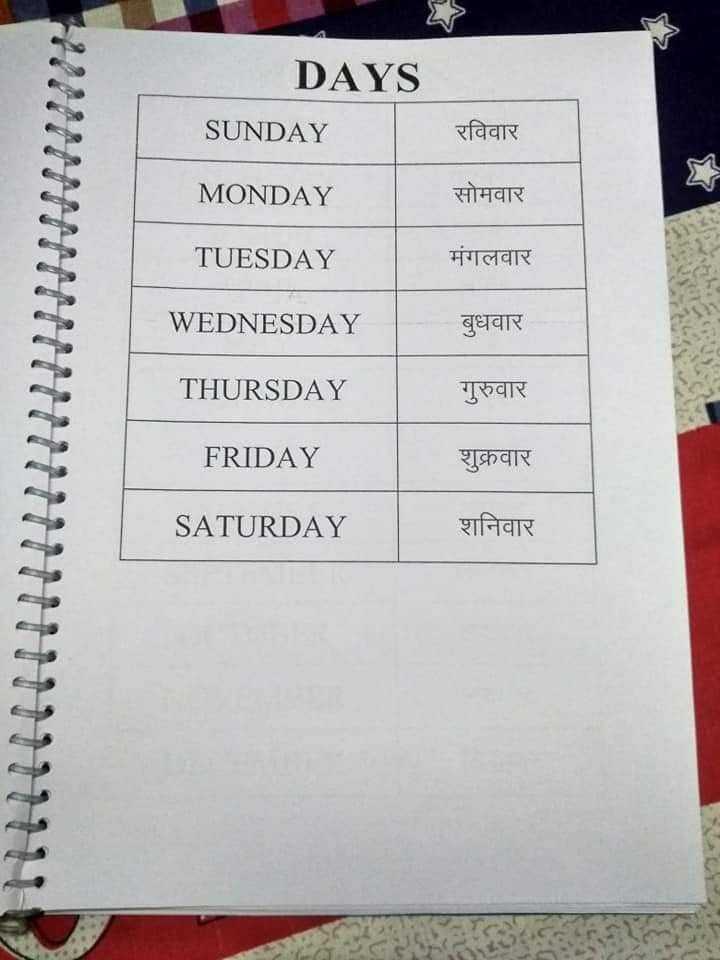 DAYS
SUNDAY रविवार
MONDAY सोमवार
TUESDAY मंगलवार
WEDNESDAY बुधवार
THURSDAY गुरुवार
FRIDAY शुक्रवार
SATURDAY शनिवार